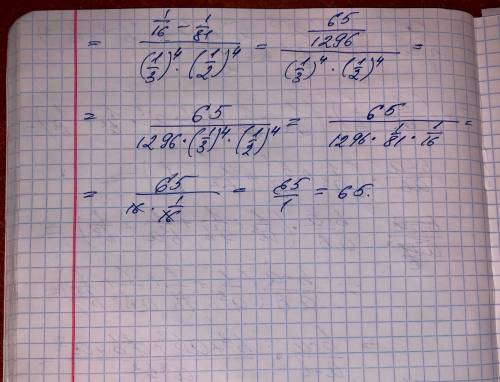 = (1/16 - 1/81) / ((1/3)^4 · (1/2)^4) = (65/1296) / ((1/3)^4 · (1/2)^4) =
= 65 / (1296 · (1/3)^4 · (1/2)^4) = 65 / (1296 · 1/81 · 1/16) =
= 65 / (16 · 1/16) = 65/1 = 65.